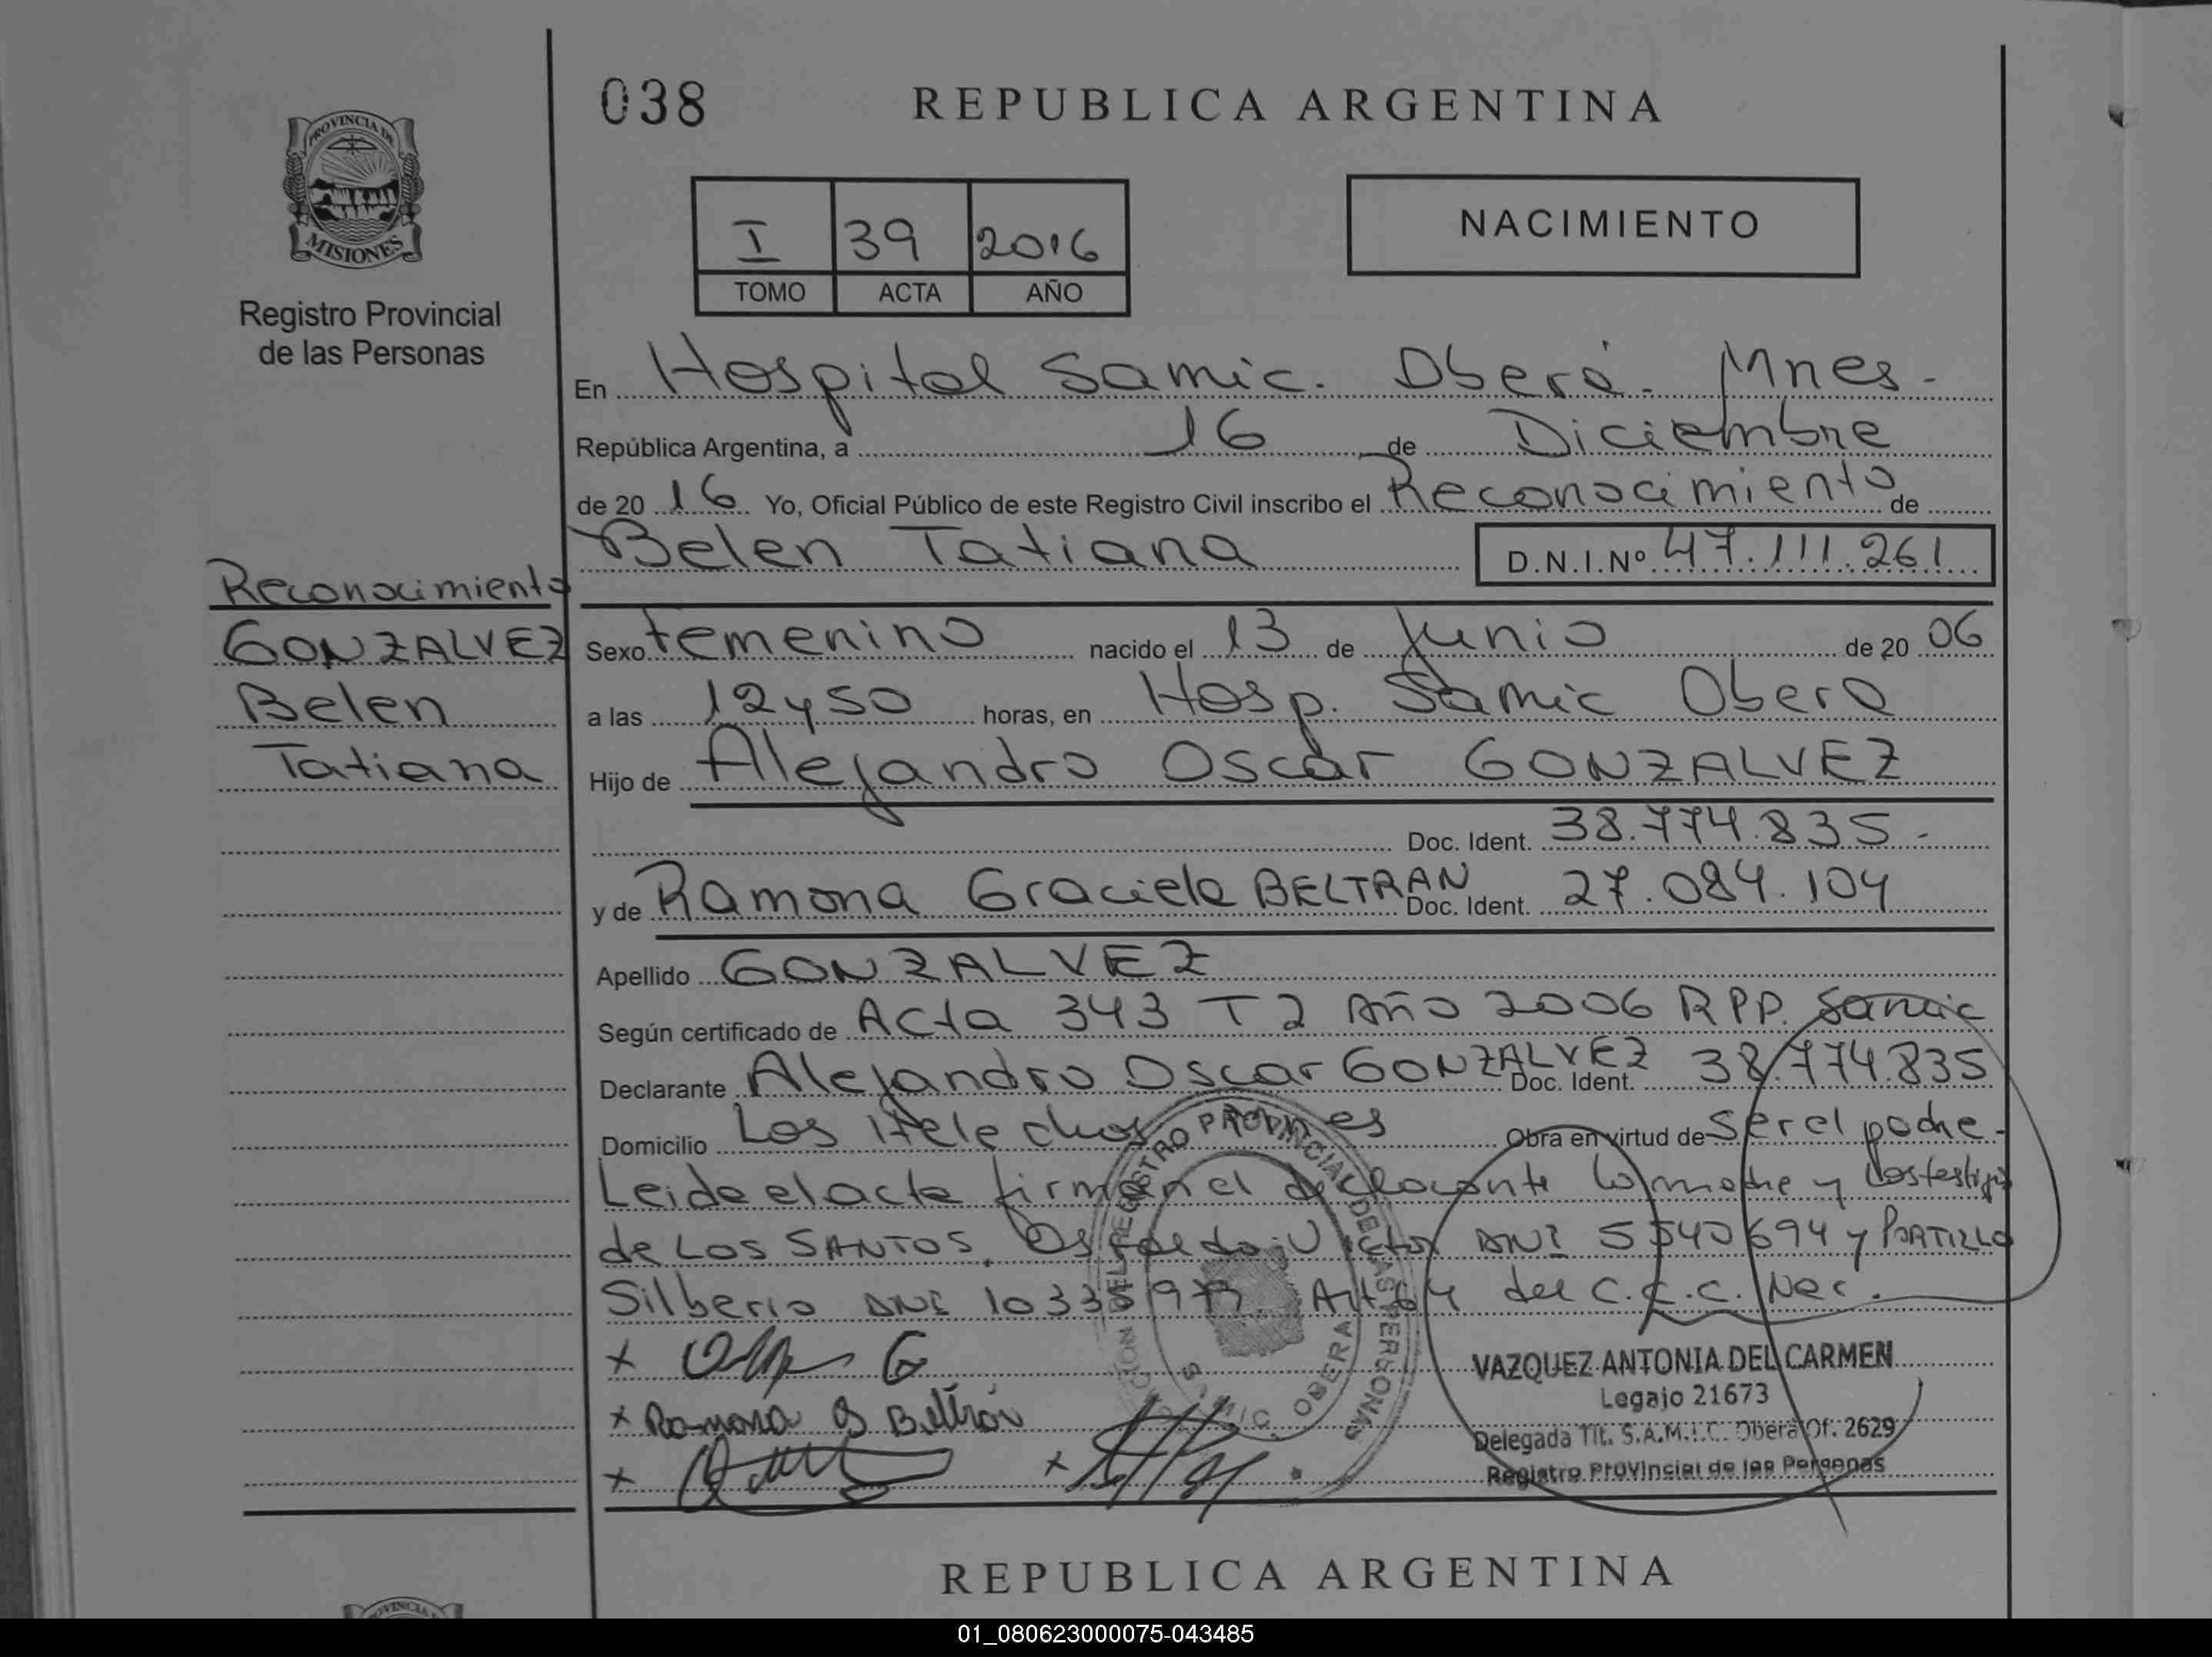 038
REPUBLICA ARGENTINA
PROVINCIA DE
MISIONES
Registro Provincial
de las Personas
I 39 2016
TOMO ACTA AÑO
NACIMIENTO
En Hospital Samic. Oberá. Mnes.
República Argentina, a 16 de Diciembre
de 20 16 Yo, Oficial Público de este Registro Civil inscribo el Reconocimiento de
Belen Tatiana D.N.I.Nº 47.111.261
Reconocimiento
GONZALVEZ
Belen
Tatiana
Sexo femenino nacido el 13 de Junio de 20 06
a las 12 y 50 horas, en Hosp. Samic Obera
Hijo de Alejandro Oscar GONZALVEZ
Doc. Ident. 38.774.835.-
y de Ramona Graciela BELTRAN Doc. Ident. 27.084.104
Apellido GONZALVEZ
Según certificado de Acta 343 T 2 Año 2006 RPP. Samic
Declarante Alejandro Oscar GONZALVEZ Doc. Ident. 38.774.835
Domicilio Los Helechos Mnes Obra en virtud de Ser el padre.
Leida el acta firman el declarante la madre y los testigos
de LOS SANTOS, Victor DNI 5540694 y PORTILLO
Silberio DNI Art 64 del C.C.C. Nac.
x
x Ramona G Beltrán
x x
REGISTRO PROVINCIAL DE LAS PERSONAS
OBERA
VAZQUEZ ANTONIA DEL CARMEN
Legajo 21673
Delegada Tit. S.A.M.I.C. Oberá Of. 2629
Registro Provincial de las Personas
REPUBLICA ARGENTINA
01_080623000075-043485